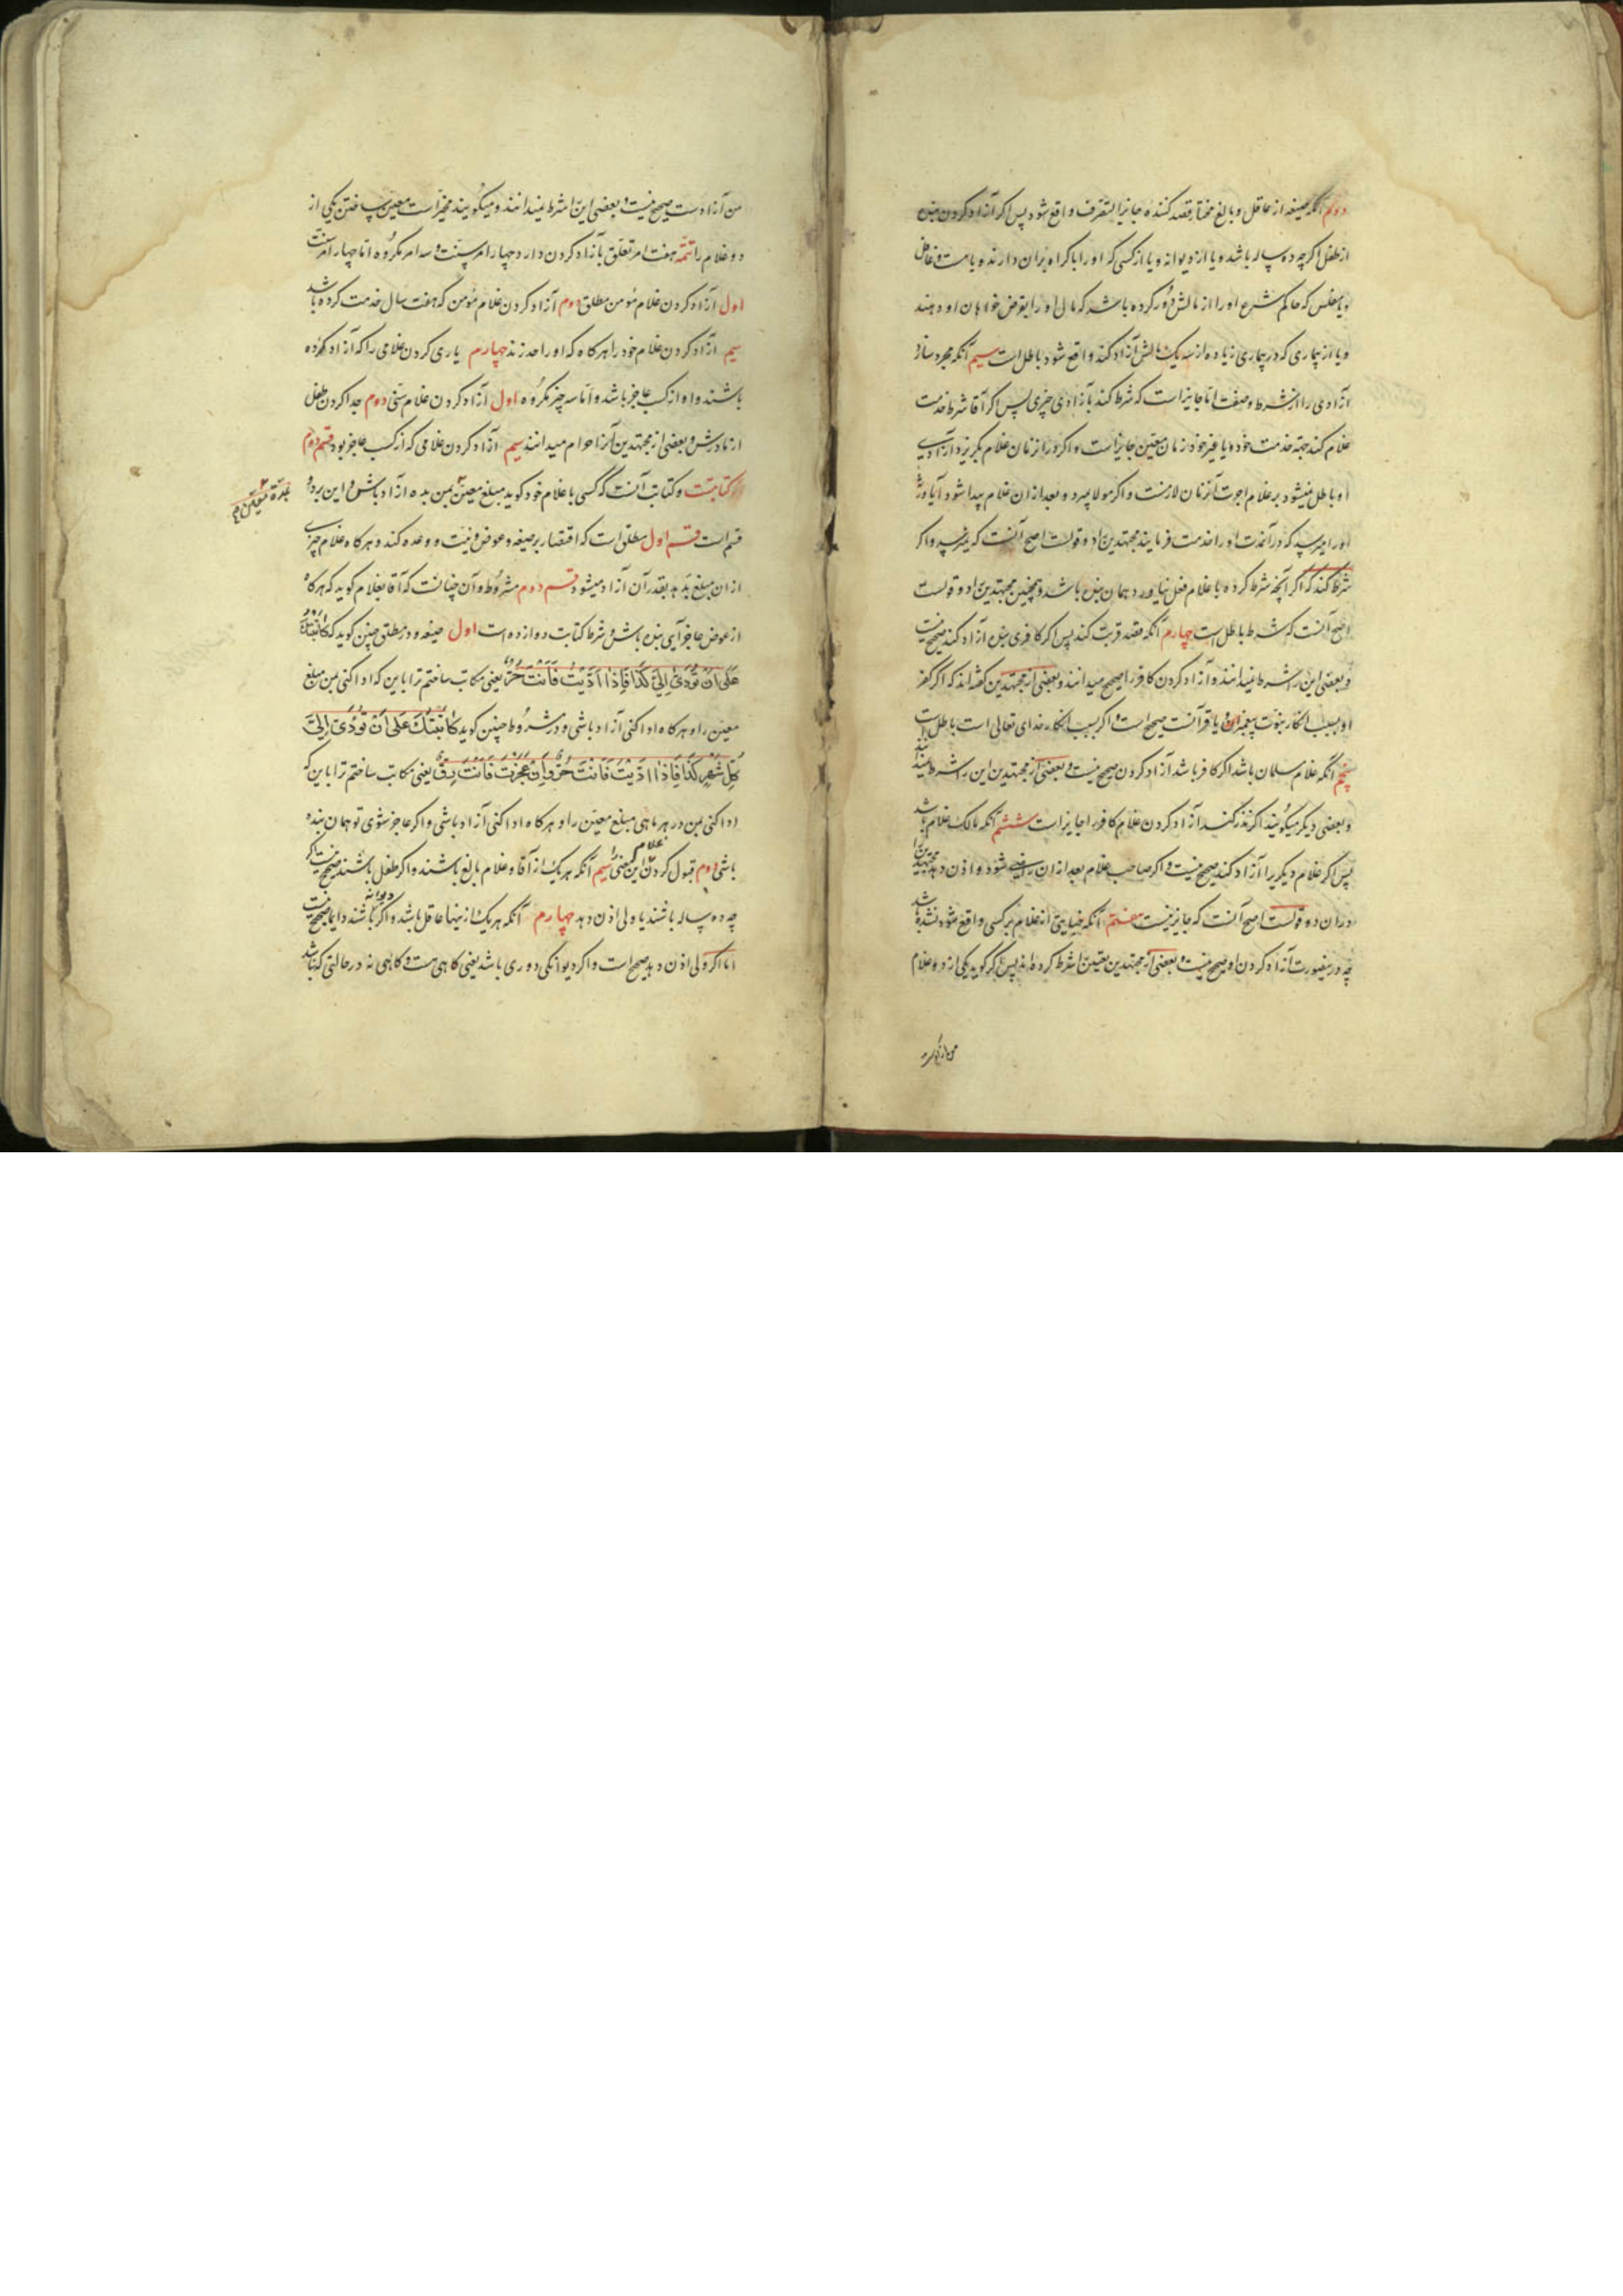 دوم آنکه صیغه از عاقل و بالغ مختار قصد کننده جایز التصرف واقع شود پس اگر آزاد کردن بنده
از طفل اگرچه ده ساله باشد و یا از دیوانه و یا از کسی که او را باکراه بران دارند و یا مست و غافل
و یا مفلس که حاکم شرع او را از مالش دور کرده باشد که مالی او را بعوض خواهان او دهند
و یا از بیماری که در بیماری زیاده از سه یک مالش آزاد کند واقع شود باطل است سیم آنکه مجرد سازد
آزادی را از شرط و صفت اما جایز است که شرط کند بآزادی چیزی پس اگر آقا شرط خدمت
غلام کند جهة خدمت خود و یا غیر خود زمان معین جایز است و اگر در آن زمان غلام بگریزد آزادی
او باطل نمیشود بر غلام اجوت آن زمان لازمست و اگر مولا بمیرد و بعد از ان غلام پیدا شود آیا ورثه
او را میرسد که در آن مدت او را خدمت فرمایند مجتهدین را دو قولست اصح آنست که نمیرسد و اگر
شرط کند که اگر آنچه شرط کرده با غلام فعل نیاورد همان بنده باشد و همچنین مجتهدین را دو قولست
اصح آنست که شرط باطل است چهارم آنکه قصد قربت کند پس اگر کافری بنده آزاد کند صحیح نیست
و بعضی این را شرط نمیدانند و آزاد کردن کافر را صحیح میدانند و بعضی از مجتهدین گفته اند که اگر کفر
او بسبب انکار نبوت پیغمبران و یا قرآنست صحیح است و اگر بسبب انکار خدای تعالی است باطل است
پنجم آنکه غلام مسلمان باشد اگر کافر باشد آزاد کردن صحیح نیست و بعضی از مجتهدین این را شرط نمیدانند
و بعضی دیگر میگویند اگر نذر کند آزاد کردن غلام کافر را جایز است ششم آنکه مالک غلام باشد
پس اگر غلام دیگریرا آزاد کند صحیح نیست و اگر صاحب غلام بعد از ان راضی شود و اذن دهد مجتهدین را
در ان دو قولست اصح آنست که جایز نیست هفتم آنکه جنایتی از غلام بر کسی واقع نشده باشد
چه درینصورت آزاد کردن او صحیح نیست و بعضی از مجتهدین تعیین را شرط کرده اند پس اگر گوید یکی از دو غلام
من آزادست صحیح نیست و بعضی این را شرط نمیدانند و میگویند مخیر است معین ساختن یکی از
دو غلام را تتمه هفت امر تعلق بآزاد کردن دارد چهار امر سنت و سه امر مکروه اما چهار امر سنت
اول آزاد کردن غلام مؤمن مطلق دوم آزاد کردن غلام مؤمن که هفت سال خدمت کرده باشد
سیم آزاد کردن غلام خود را هرگاه که او را حد زند چهارم یاری کردن غلامی را که آزاد کرده
باشند و او از کسب عاجز باشد و اما سه چیز مکروه اول آزاد کردن غلام سنی دوم جدا کردن طفل
از مادرش و بعضی از مجتهدین آنرا حرام میدانند سیم آزاد کردن غلامی که از کسب عاجز بود قسم دوم
کتابت و کتابت آنست که کسی با غلام خود گوید مبلغ معین بمن بده آزاد باش و این بر دو
قسم است قسم اول مطلق است که اقتصار بر صیغه و عوض و نیت و وعده کند و هرگاه غلام چیزی
از ان مبلغ بدهد بقدر آن آزاد میشود قسم دوم مشروط و آن چنانست که آقا بغلام گوید که هرگاه
از عوض عاجز آیی بنده باش و شرط کتابت دوازده است اول صیغه و در مطلق چنین گوید که کاتبتک
عَلی اَنْ تُؤَدّیَ اِلَیَّ کَذا فَاِذا اَدَّیْتَ فَاَنْتَ حُرٌّ یعنی مکاتب ساختم ترا باین که ادا کنی بمن مبلغ
معین را و هرگاه ادا کنی آزاد باشی و در مشروط چنین گوید کاتَبْتُکَ عَلی اَنْ تُؤَدّیَ اِلَیَّ
کُلَّ شَهْرٍ کَذا فَاِذا اَدَّیْتَ فَاَنْتَ حُرٌّ وَاِنْ عَجَزْتَ فَاَنْتَ رِقٌّ یعنی مکاتب ساختم ترا باین که
ادا کنی بمن در هر ماهی مبلغ معین را و هرگاه ادا کنی آزاد باشی و اگر عاجز شوی تو همان بنده
باشی دوم قبول کردن غلام این معنی را سیم آنکه هر یک از آقا و غلام بالغ باشند و اگر طفل باشند صحیح نیست اگر
چه ده ساله باشند یا ولی اذن دهد چهارم آنکه هر یک از اینها عاقل باشد و اگر دیوانه باشند دایما صحیح نیست
اما اگر ولی اذن دهد صحیح است و اگر دیوانگی دوری باشد یعنی گاهی هست و گاهی نه در حالتی که نباشد